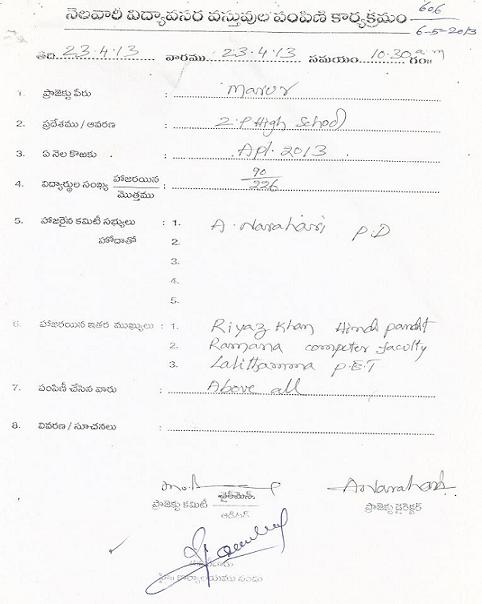 నెలవారీ విద్యావసర వస్తువుల పంపిణి కార్యక్రమం
606
6-5-2013
తేది 23.4.13 వారము 23.4.13 సమయం 10.30am గం॥
1. ప్రాజెక్టు పేరు : Marur
2. ప్రదేశము / ఆవరణ : Z.P High School
3. ఏ నెల కొఱకు : Apl. 2013
4. విద్యార్థుల సంఖ్య హాజరయిన / మొత్తము : 90 / 226
5. హాజరైన కమిటీ సభ్యులు : 1. A. Narahari P.D
హోదాతో 2.
3.
4.
5.
6. హాజరయిన ఇతర ముఖ్యులు : 1. Riyaz Khan Hindi pandit
2. Ramana computer faculty
3. Lalithamma P.E.T
7. పంపిణీ చేసిన వారు : Above all
8. వివరణ / సూచనలు :
A Narahari
ప్రాజెక్టు కమిటీ ఛైర్మెన్ ప్రాజెక్టు డైరెక్టర్
ఆడిటర్